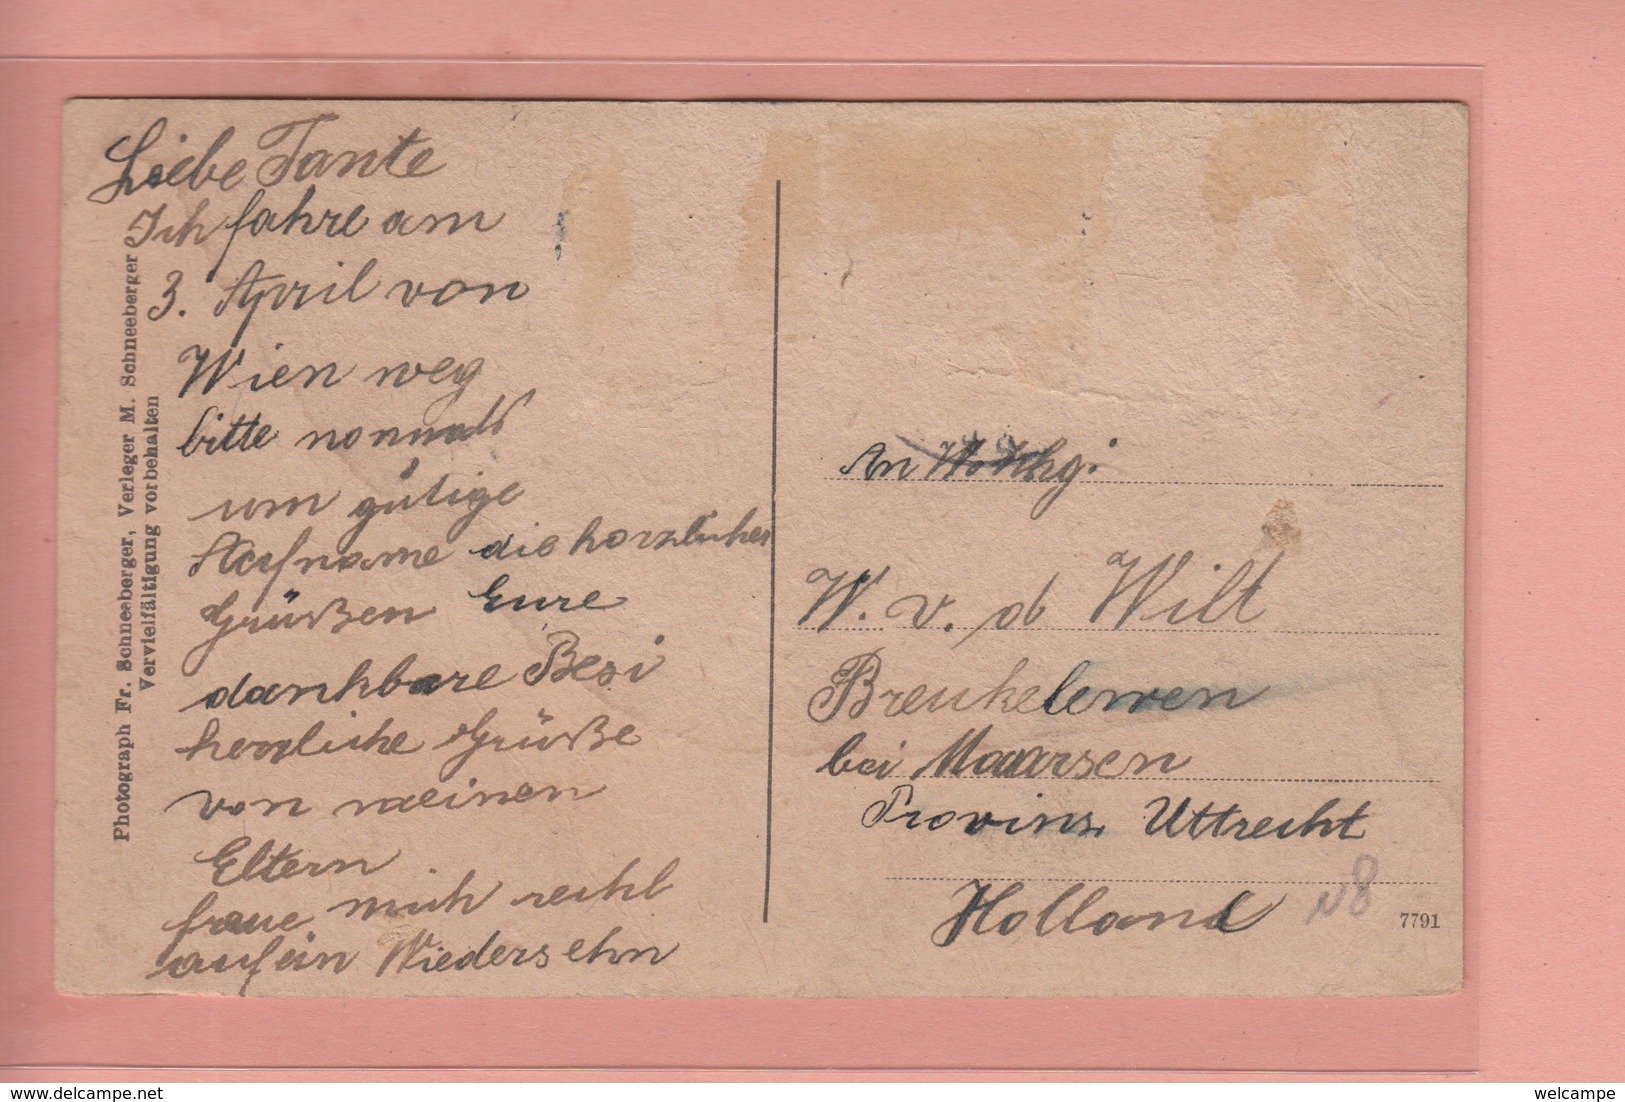 Liebe Tante
Ich fahre am
3. April von
Wien weg
bitte nochmals
um gütige
Aufname die herzlichen
Grüßen Eure
dankbare Besi
herzliche Grüße
von meinen
Eltern
freue mich recht
auf ein Wiedersehn
Photograph Fr. Schneeberger, Verleger M. Schneeberger
Vervielfältigung vorbehalten
An
W. v. d Wilt
Breukelewen
bei Maarsen
Provinz Uttrecht
Holland
N8
7791
welcampe
welcampe.com